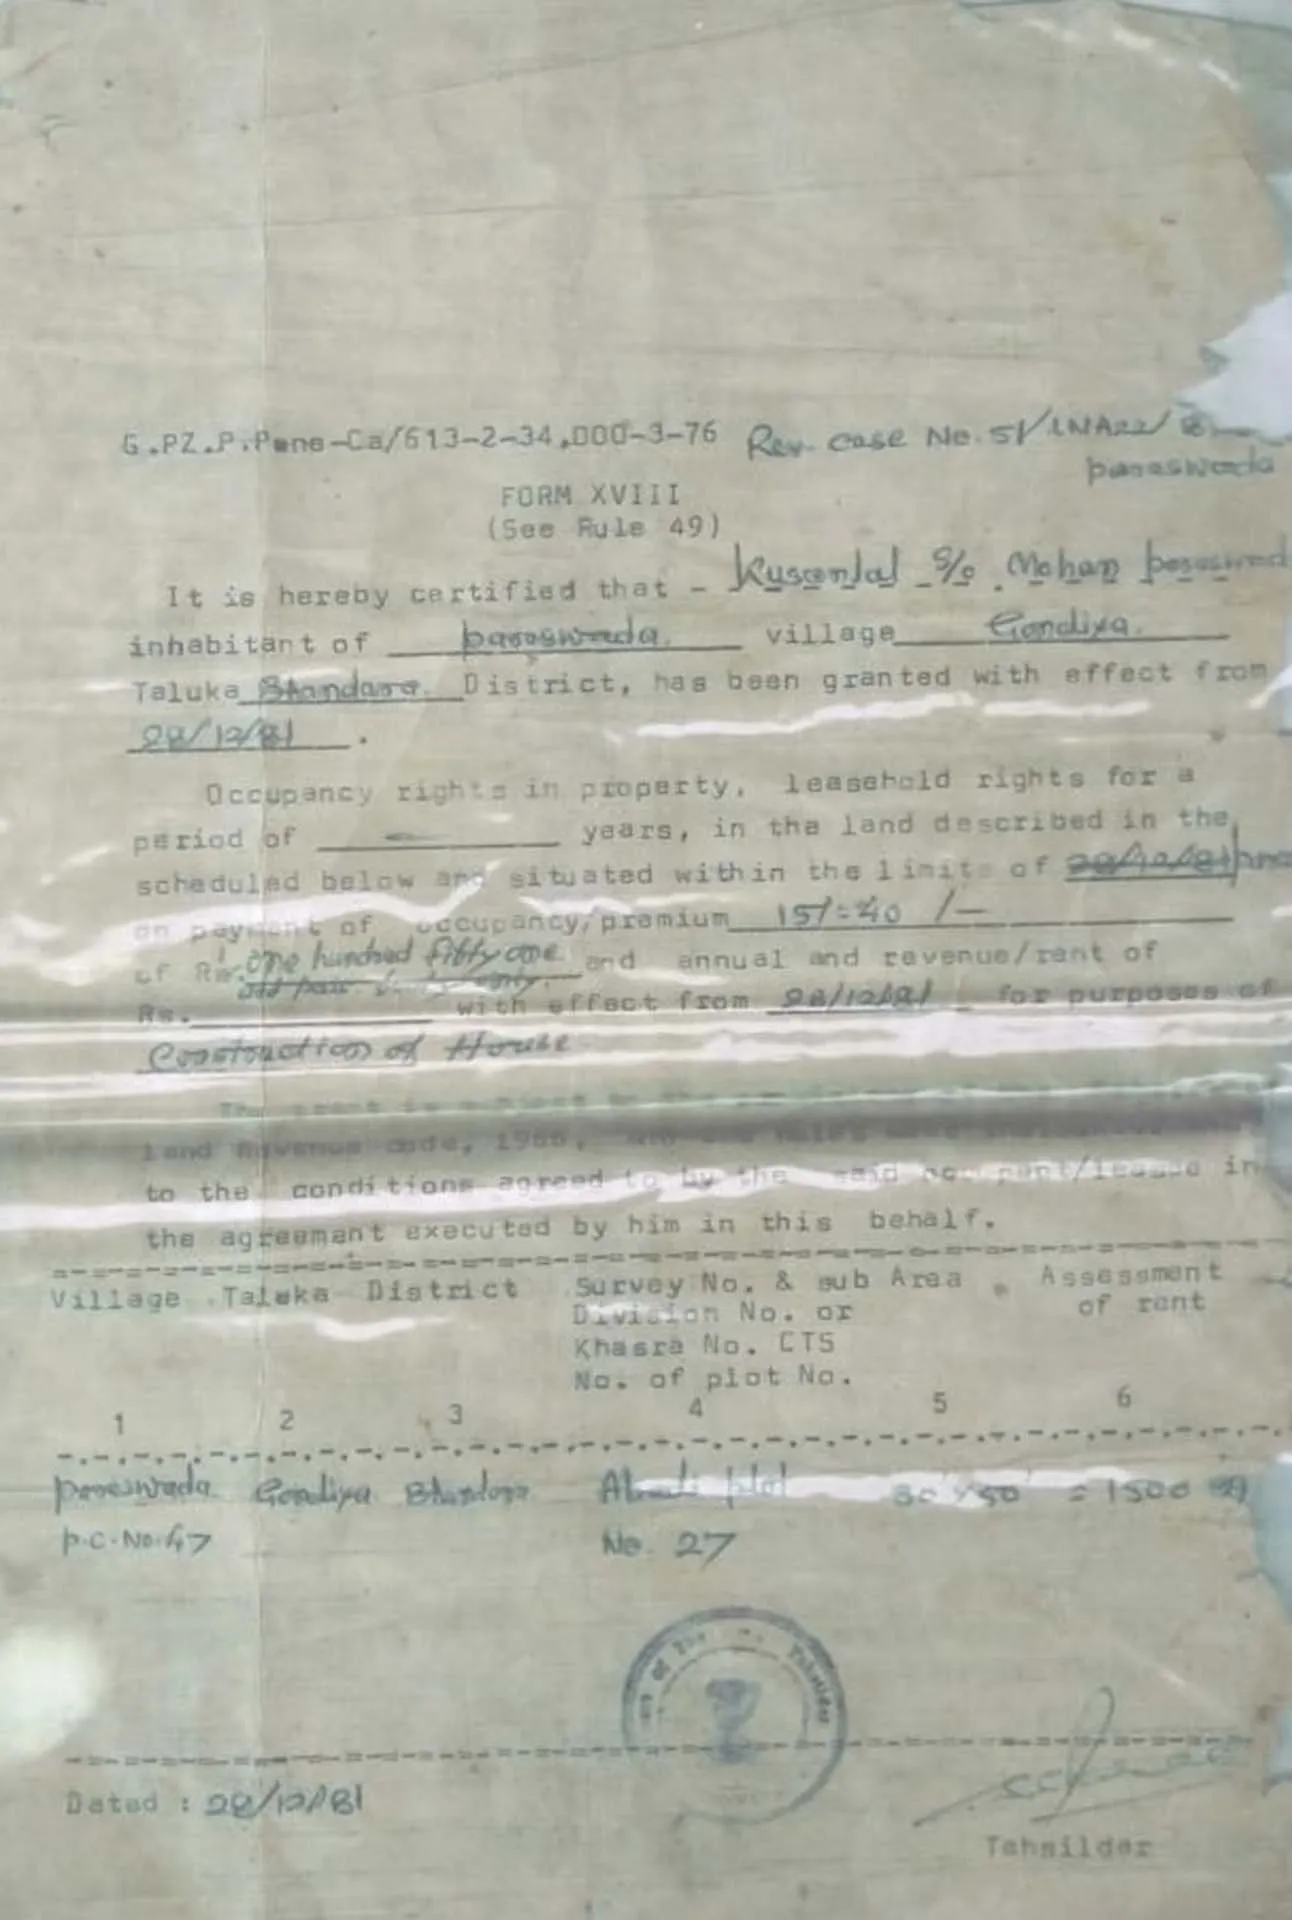 G.PZ.P.Pene-Ca/613-2-34,000-3-76 Rev. case No. 51/LNA22/
paraswada
FORM XVIII
(See Rule 49)
It is hereby certified that - Kusanlal S/o. Mohan
inhabitant of paraswada. village Gondiya.
Taluka Bhandara. District, has been granted with effect from
28/12/81.
Occupancy rights in property, leasehold rights for a
period of years, in the land described in the
scheduled below and situated within the limits of 28/12/81
on payment of occupancy/premium 151=40 /-
of Rs. One hundred fifty one and annual and revenue/rent of
Rs. with effect from 28/12/81 for purposes of
Construction of House
The grant is subject to the
Land Revenue code, 1966,
to the conditions agreed to by the said lessee in
the agreement executed by him in this behalf.
Village Taluka District Survey No. & sub Area Assessment
Division No. or of rent
Khasra No. CTS
No. of plot No.
1 2 3 4 5 6
paraswada Gondiya Bhandara Abadi plot 30 x 50 = 1500
p.c.No.47 No. 27
of The Tahsildar
Dated : 28/12/81
Tahsilder